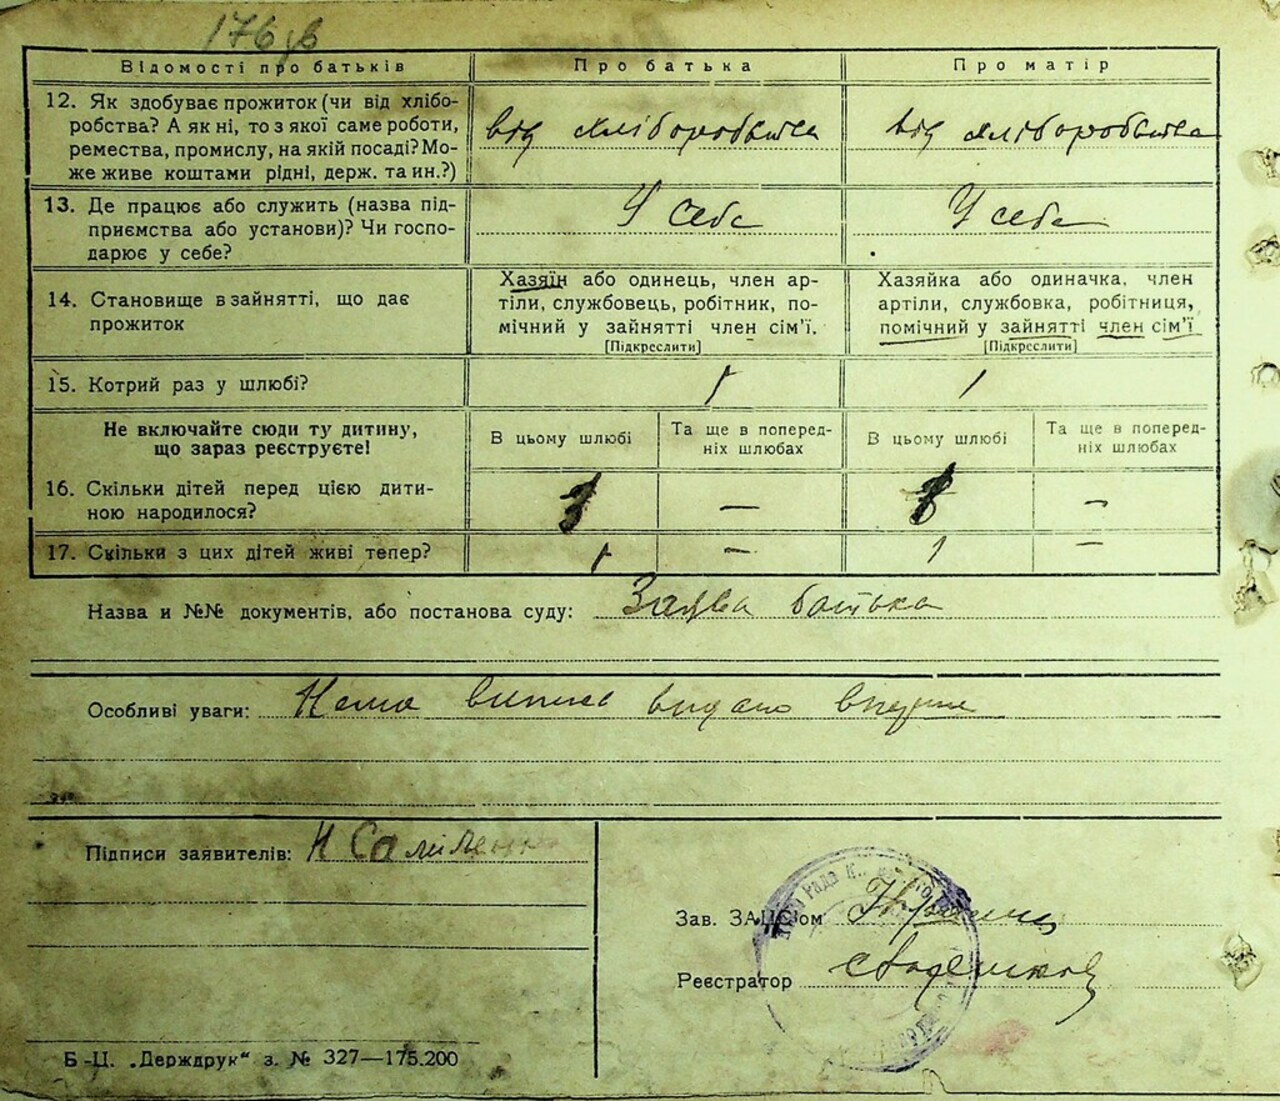 176 зв
Відомості про батьків
Про батька
Про матір
12. Як здобуває прожиток (чи від хлібо-
робства? А як ні, то з якої саме роботи,
ремества, промислу, на якій посаді? Мо-
же живе коштами рідні, держ. та ин.?)
від хліборобства
від хліборобства
13. Де працює або служить (назва під-
приємства або установи)? Чи госпо-
дарює у себе?
У себе
У себе
14. Становище в зайнятті, що дає
прожиток
Хазяїн або одинець, член ар-
тіли, службовець, робітник, по-
мічний у зайнятті член сім'ї.
[Підкреслити]
Хазяйка або одиначка, член
артіли, службовка, робітниця,
помічний у зайнятті член сім'ї
[Підкреслити]
15. Котрий раз у шлюбі?
1
1
Не включайте сюди ту дитину,
що зараз реєструєте!
В цьому шлюбі
Та ще в поперед-
ніх шлюбах
В цьому шлюбі
Та ще в поперед-
ніх шлюбах
16. Скільки дітей перед цією дити-
ною народилося?
—
—
17. Скільки з цих дітей живі тепер?
1
—
1
—
Назва и №№ документів, або постанова суду: Заява батька
Особливі уваги: Нема випись видано вперше
Підписи заявителів: Н
Зав. ЗАЦСом
Реєстратор
Б.-Ц. „Держдрук“ з. № 327—175.200